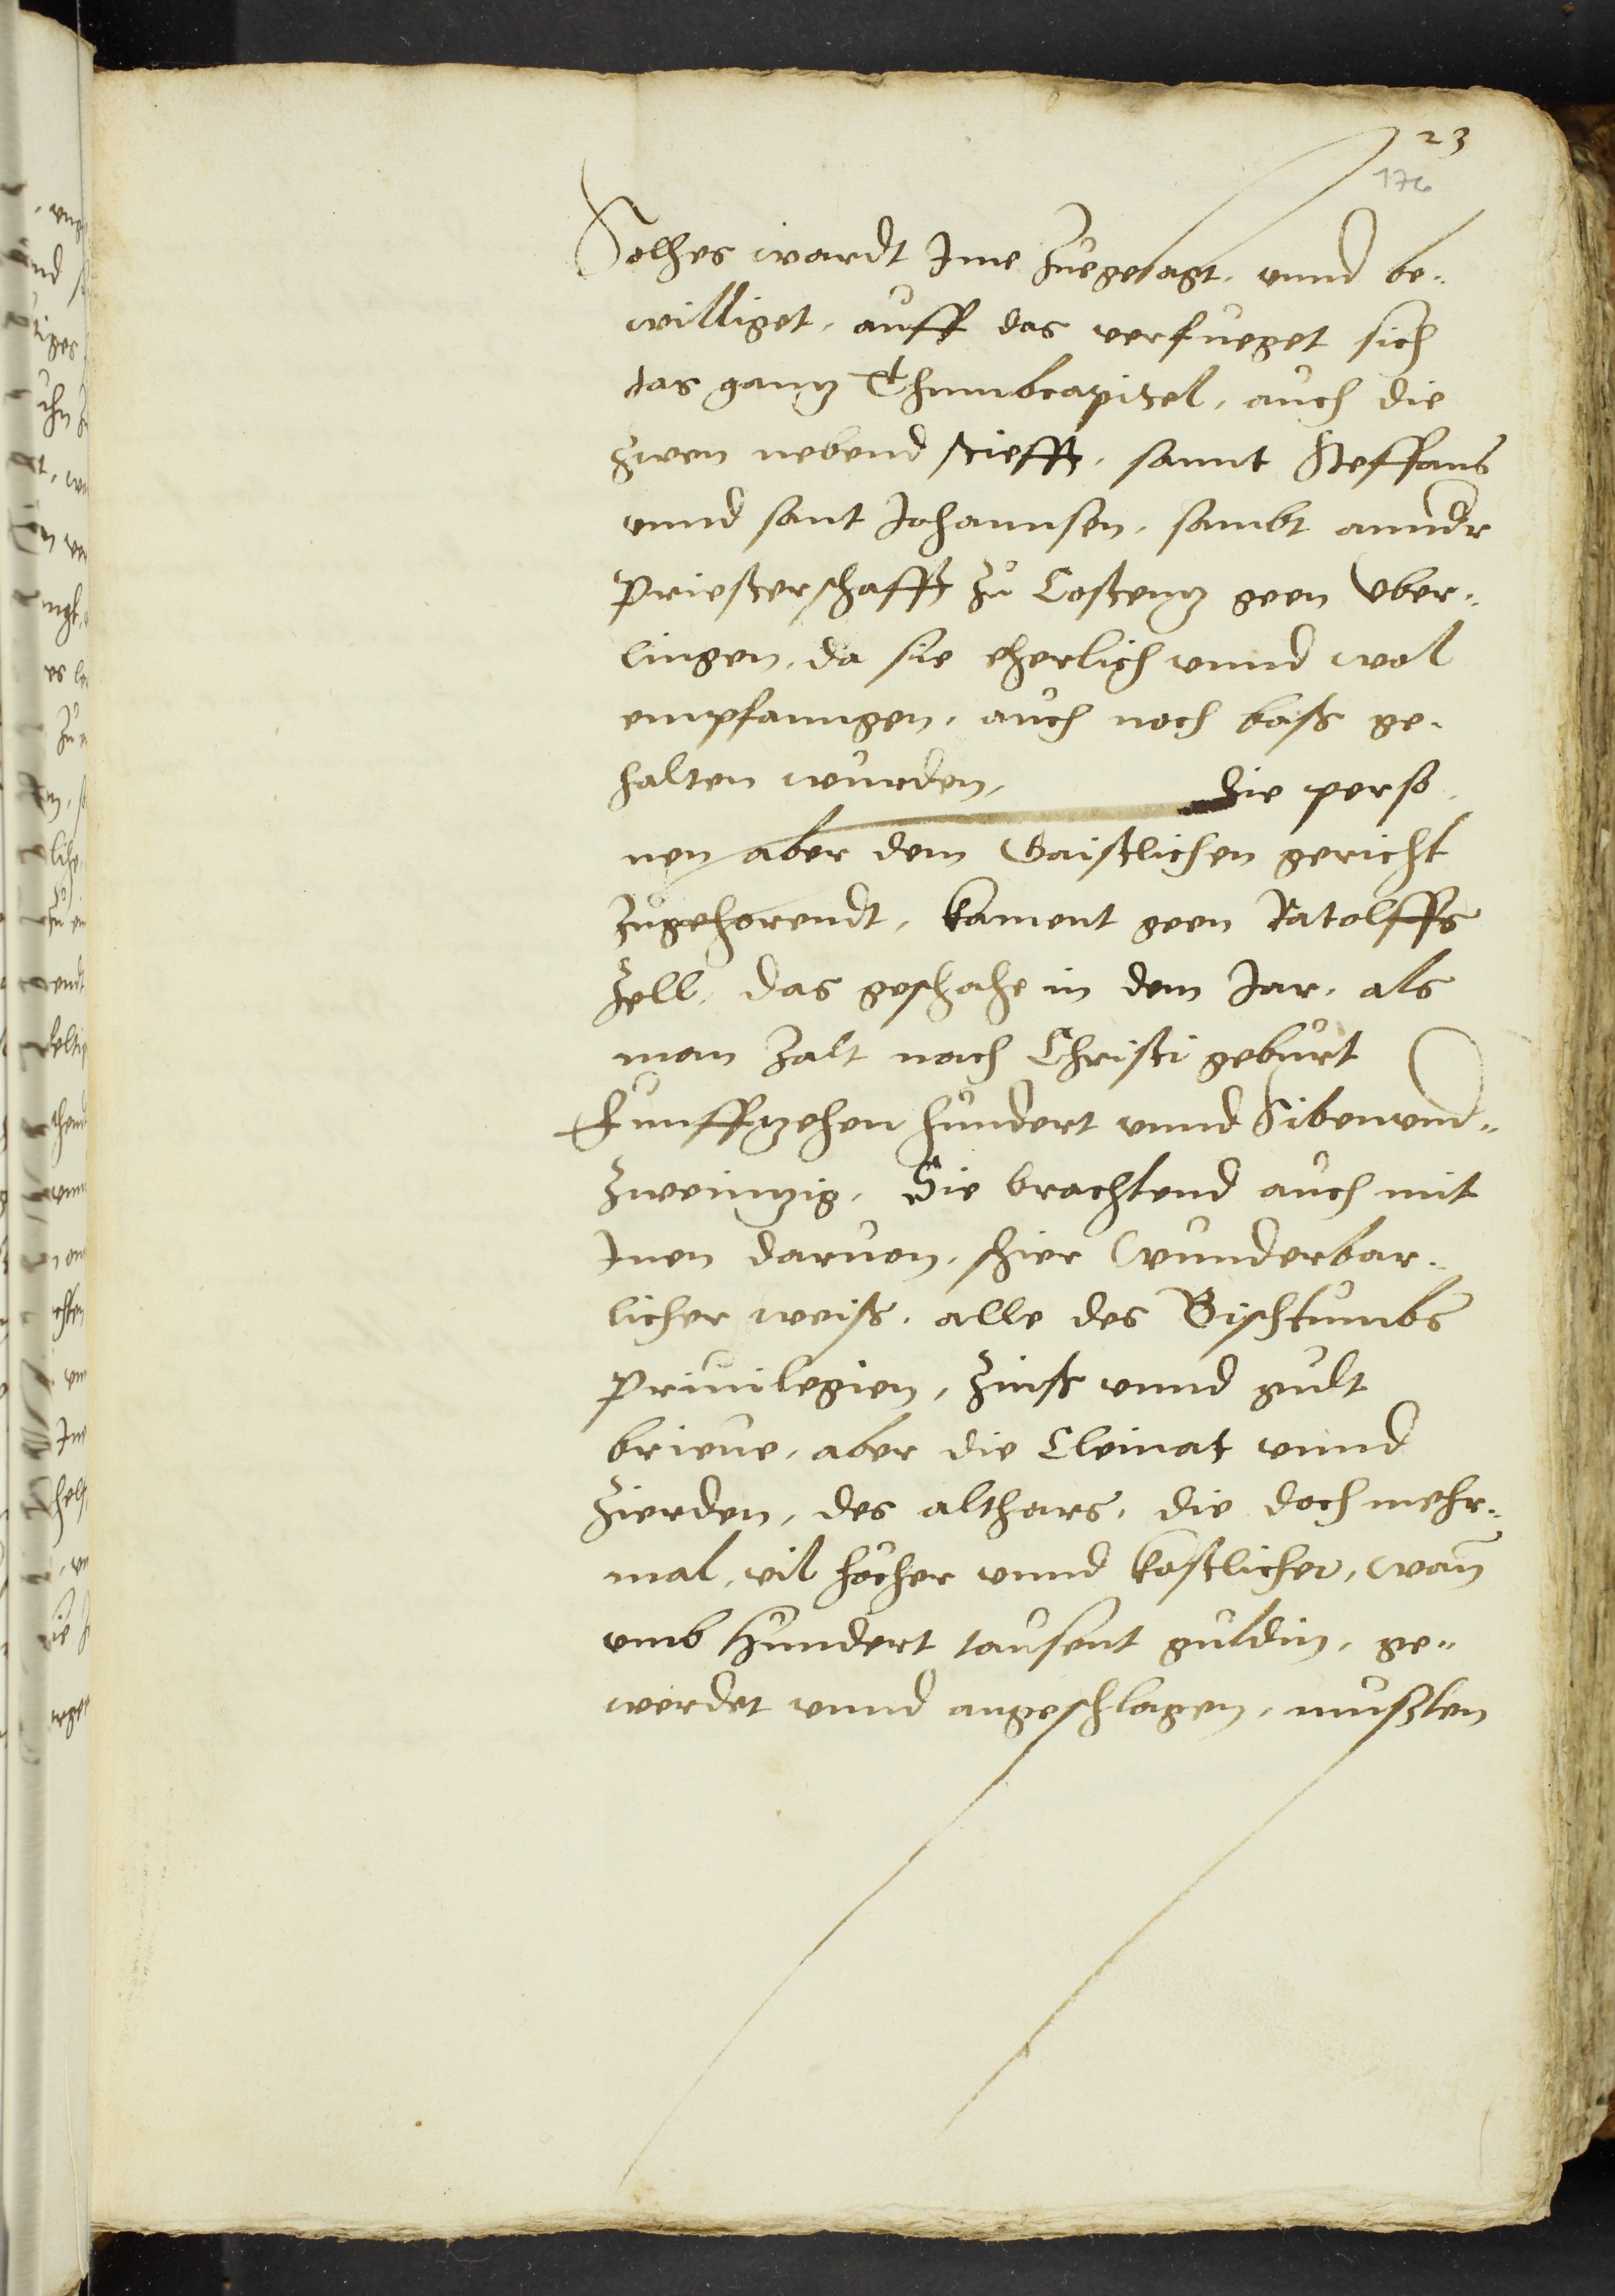 23
176
Solhes wardt Jme Zuegesagt, vnnd be„
williget, auff das verfueget sich
das gantz Thumbcapitel, auch die
zwen nebend stiefft, sannt Steffans
vnnd sant Johannsen, sambt annder
Priesterschafft zů Costentz geen Vber„
lingen, da sie eherlich vnnd wol
empfanngen, auch noch bass ge„
halten wurden, Die perso„
nen aber dem Gaistlichen gericht
zůgehorendt, kament geen Ratolffs
Zell, das geschahe in dem Jar, als
man zalt nach Christi gebůrt
Funffzehen hůndert vnnd Sibenvnd„
zweintzig, Sie brachtend auch mit
Jnen daruon, schier wunderbar„
licher weiss, alle des Bischtumbs
Priuilegien, Zinss vnnd gult
brieue, aber die Cleinat vnnd
Zierden, des althars, die doch mehr„
mal, vil höcher vnnd kostlicher, wan
vmb Hundert tausent guldin, ge„
werdet vnnd angeschlagen, mussten